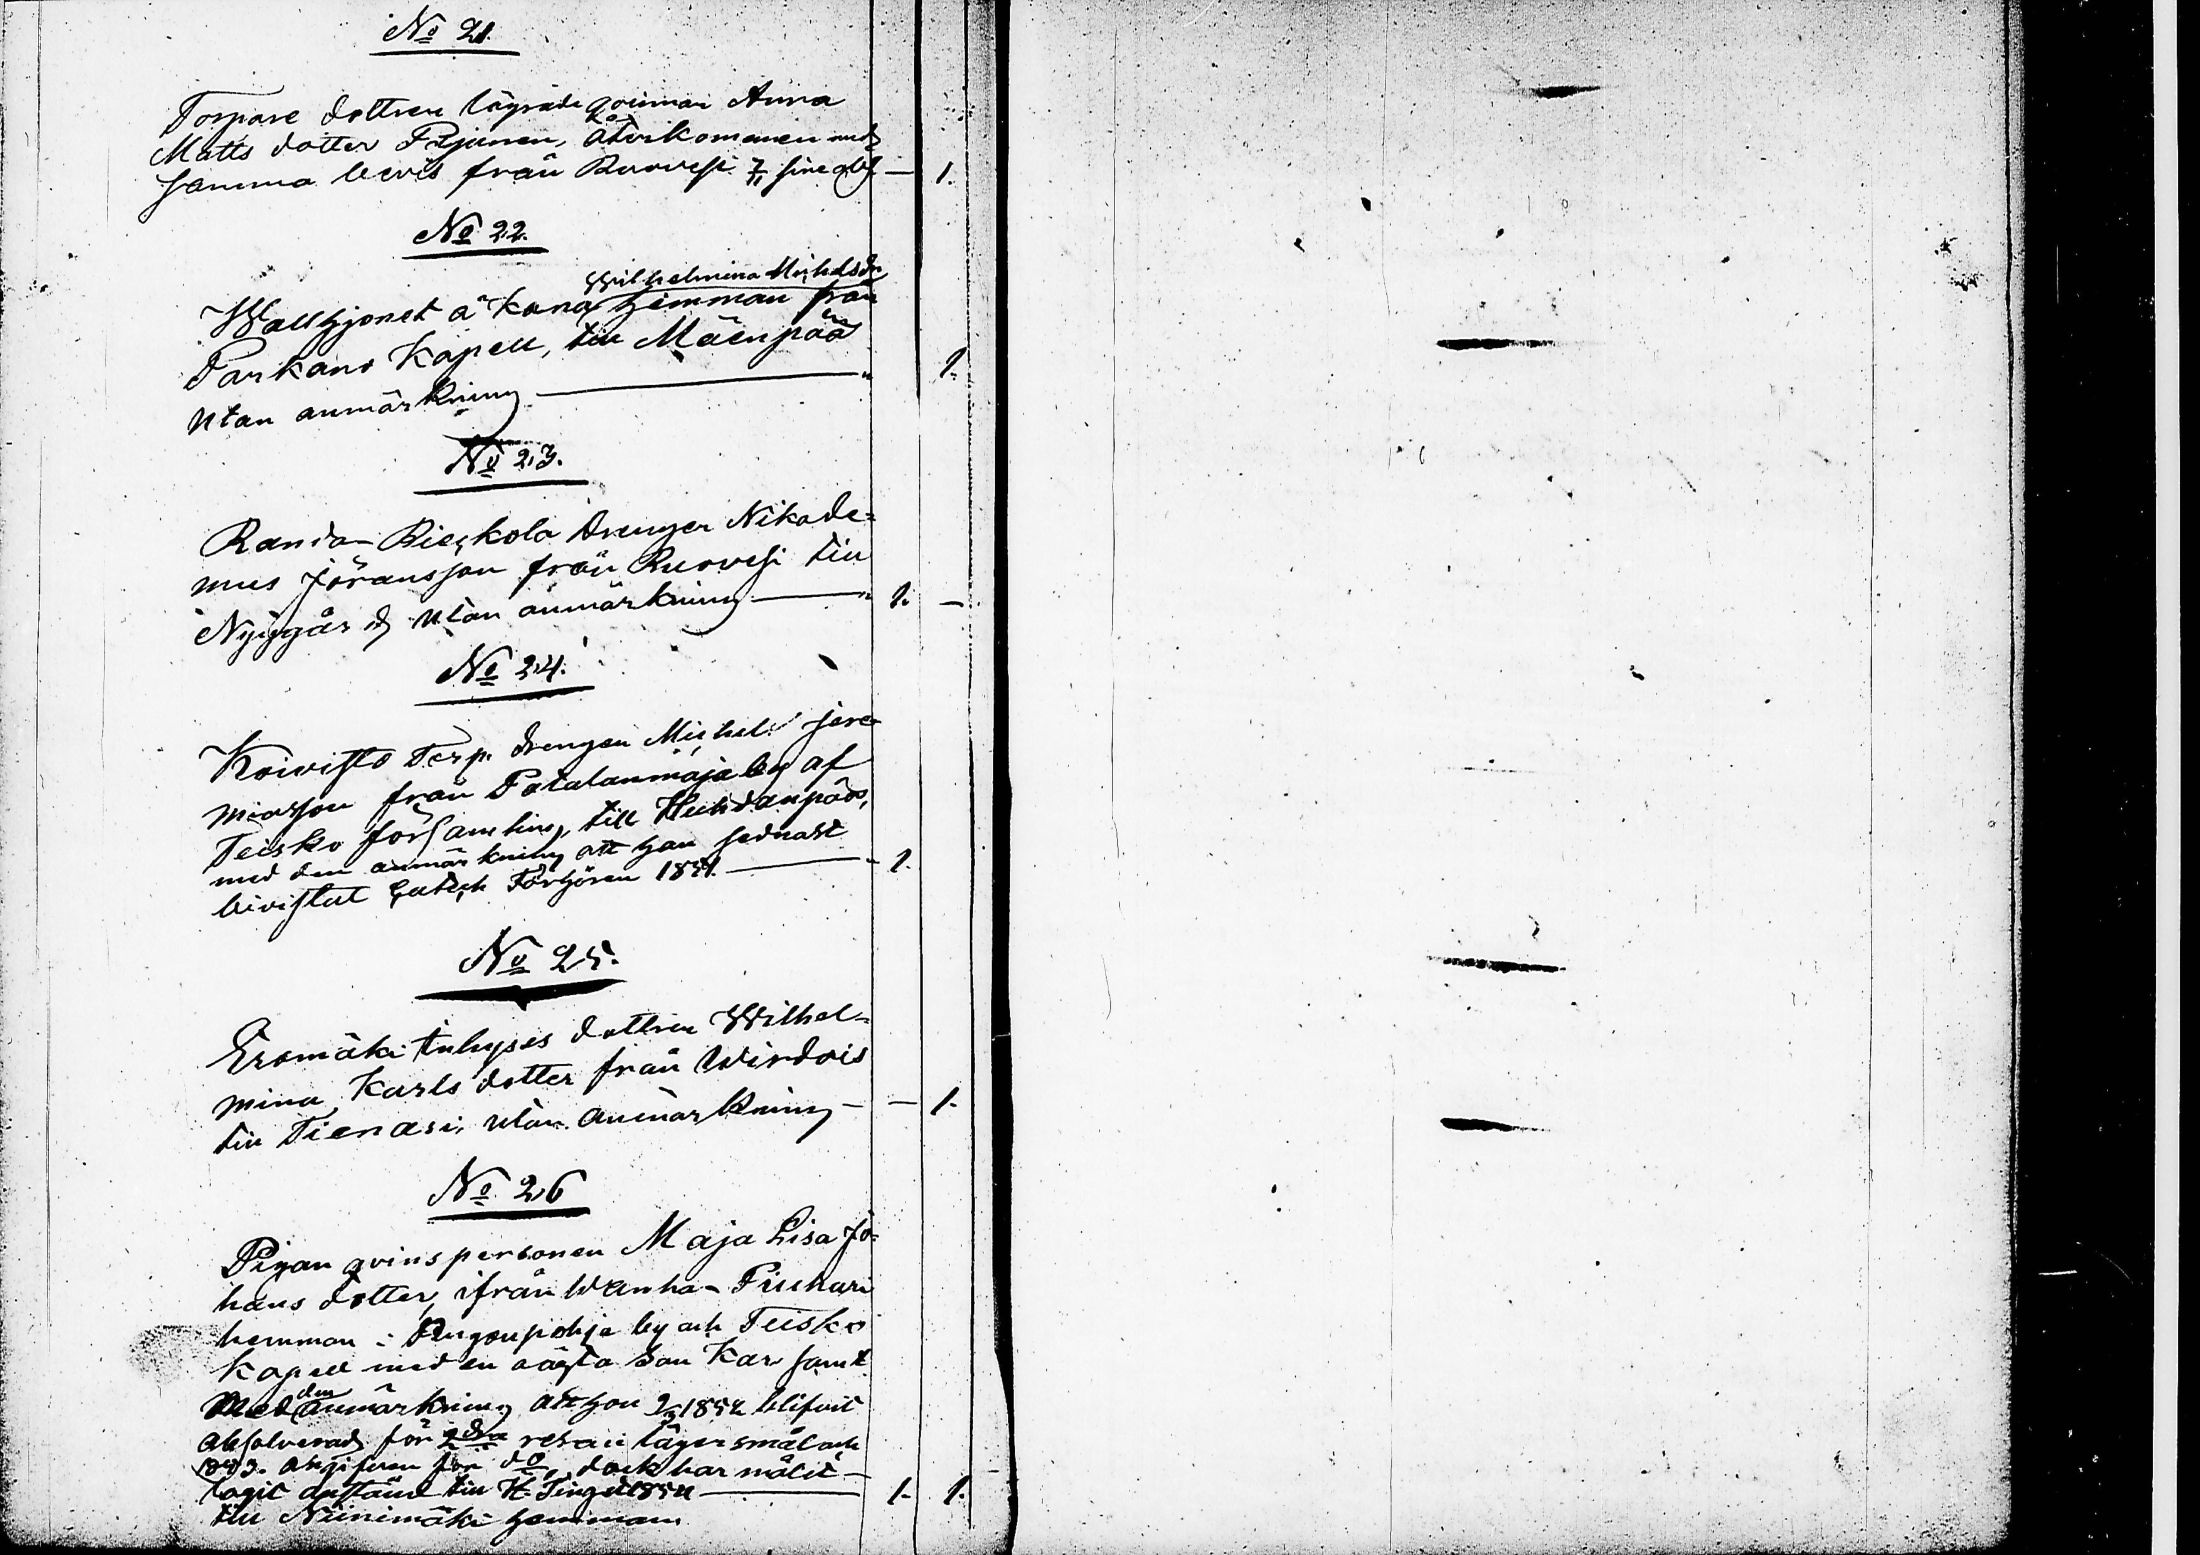 No 21.
Torpare dottren lägrade qvinnan Anna
Matts dotter Pitjänen, har återkommen med
samma bevis från Ruovesi 7/11 sine obs — 1.
No 22.
Wilhelmina Michelsdr
Wallhjonet å Kana Hemman från
Parkano Kapell, till Mäenpää
utan anmärkning — " 1.
No 23.
Randa-Pieskola Drengen Nikode=
mus Jöransson från Ruovesi till
Nygård utan anmärkning — " 1. —
No 24.
Koivisto Torp. drengen Michel Jere
miasson från Patalanmaja by af
Teisko församling, till Huhdanpää,
med den anmärkning att han sednast
bivistat Catech Förhören 1851. — 1.
No 25.
Eromäki Inhyses dottren Wilhel=
mina Karls dotter från Wirdois
till Tienasi, utan anmärkning — — 1.
No 26
Pigan qvinspersonen Maja Lisa Jo=
hans dotter, ifrån Wanha-Piuhari
hemman i by och Teisko
Kapell med en oägta Son Karl samt
Med den anmärkning att hon 1852 blifvit
absolverad för 2dra resan lägersmål och
1853. angifven för do, dock har målet
tagit anstånd till H. Tinget 1854 — 1. 1.
till Niinimäki hemman